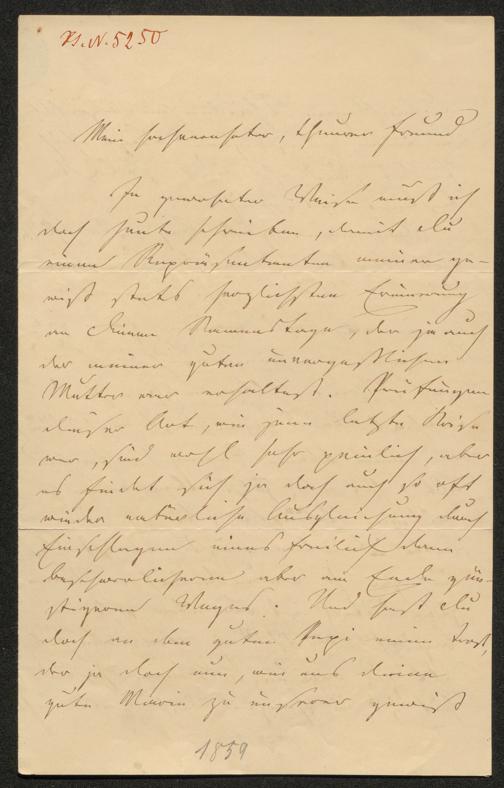 Hs. N. 5250
Mein hochverehrter, theurer Freund
In gewohnter Weise muß ich
doch heute schreiben, damit du
einen Repräsentanten meiner ge-
wiß stets herzlichsten Erinnerung
an Deinem Namenstage, der ja auch
der meiner guten unvergeßlichen
Mutter war erhaltest. Prüfungen
dieser Art, wie jene letzte Krise
war, sind wohl sehr peinlich, aber
es findet sich ja doch auch so oft
wieder natürliche Ausgleichung durch
Einschlagen eines freilich dann
beschwerlicheren aber am Ende gün-
stigeren Weges. Und hast du
doch an dem guten Pepi einen Trost,
der ja doch nun, wie uns deine
gute Marie zu unserer gewiß
1859